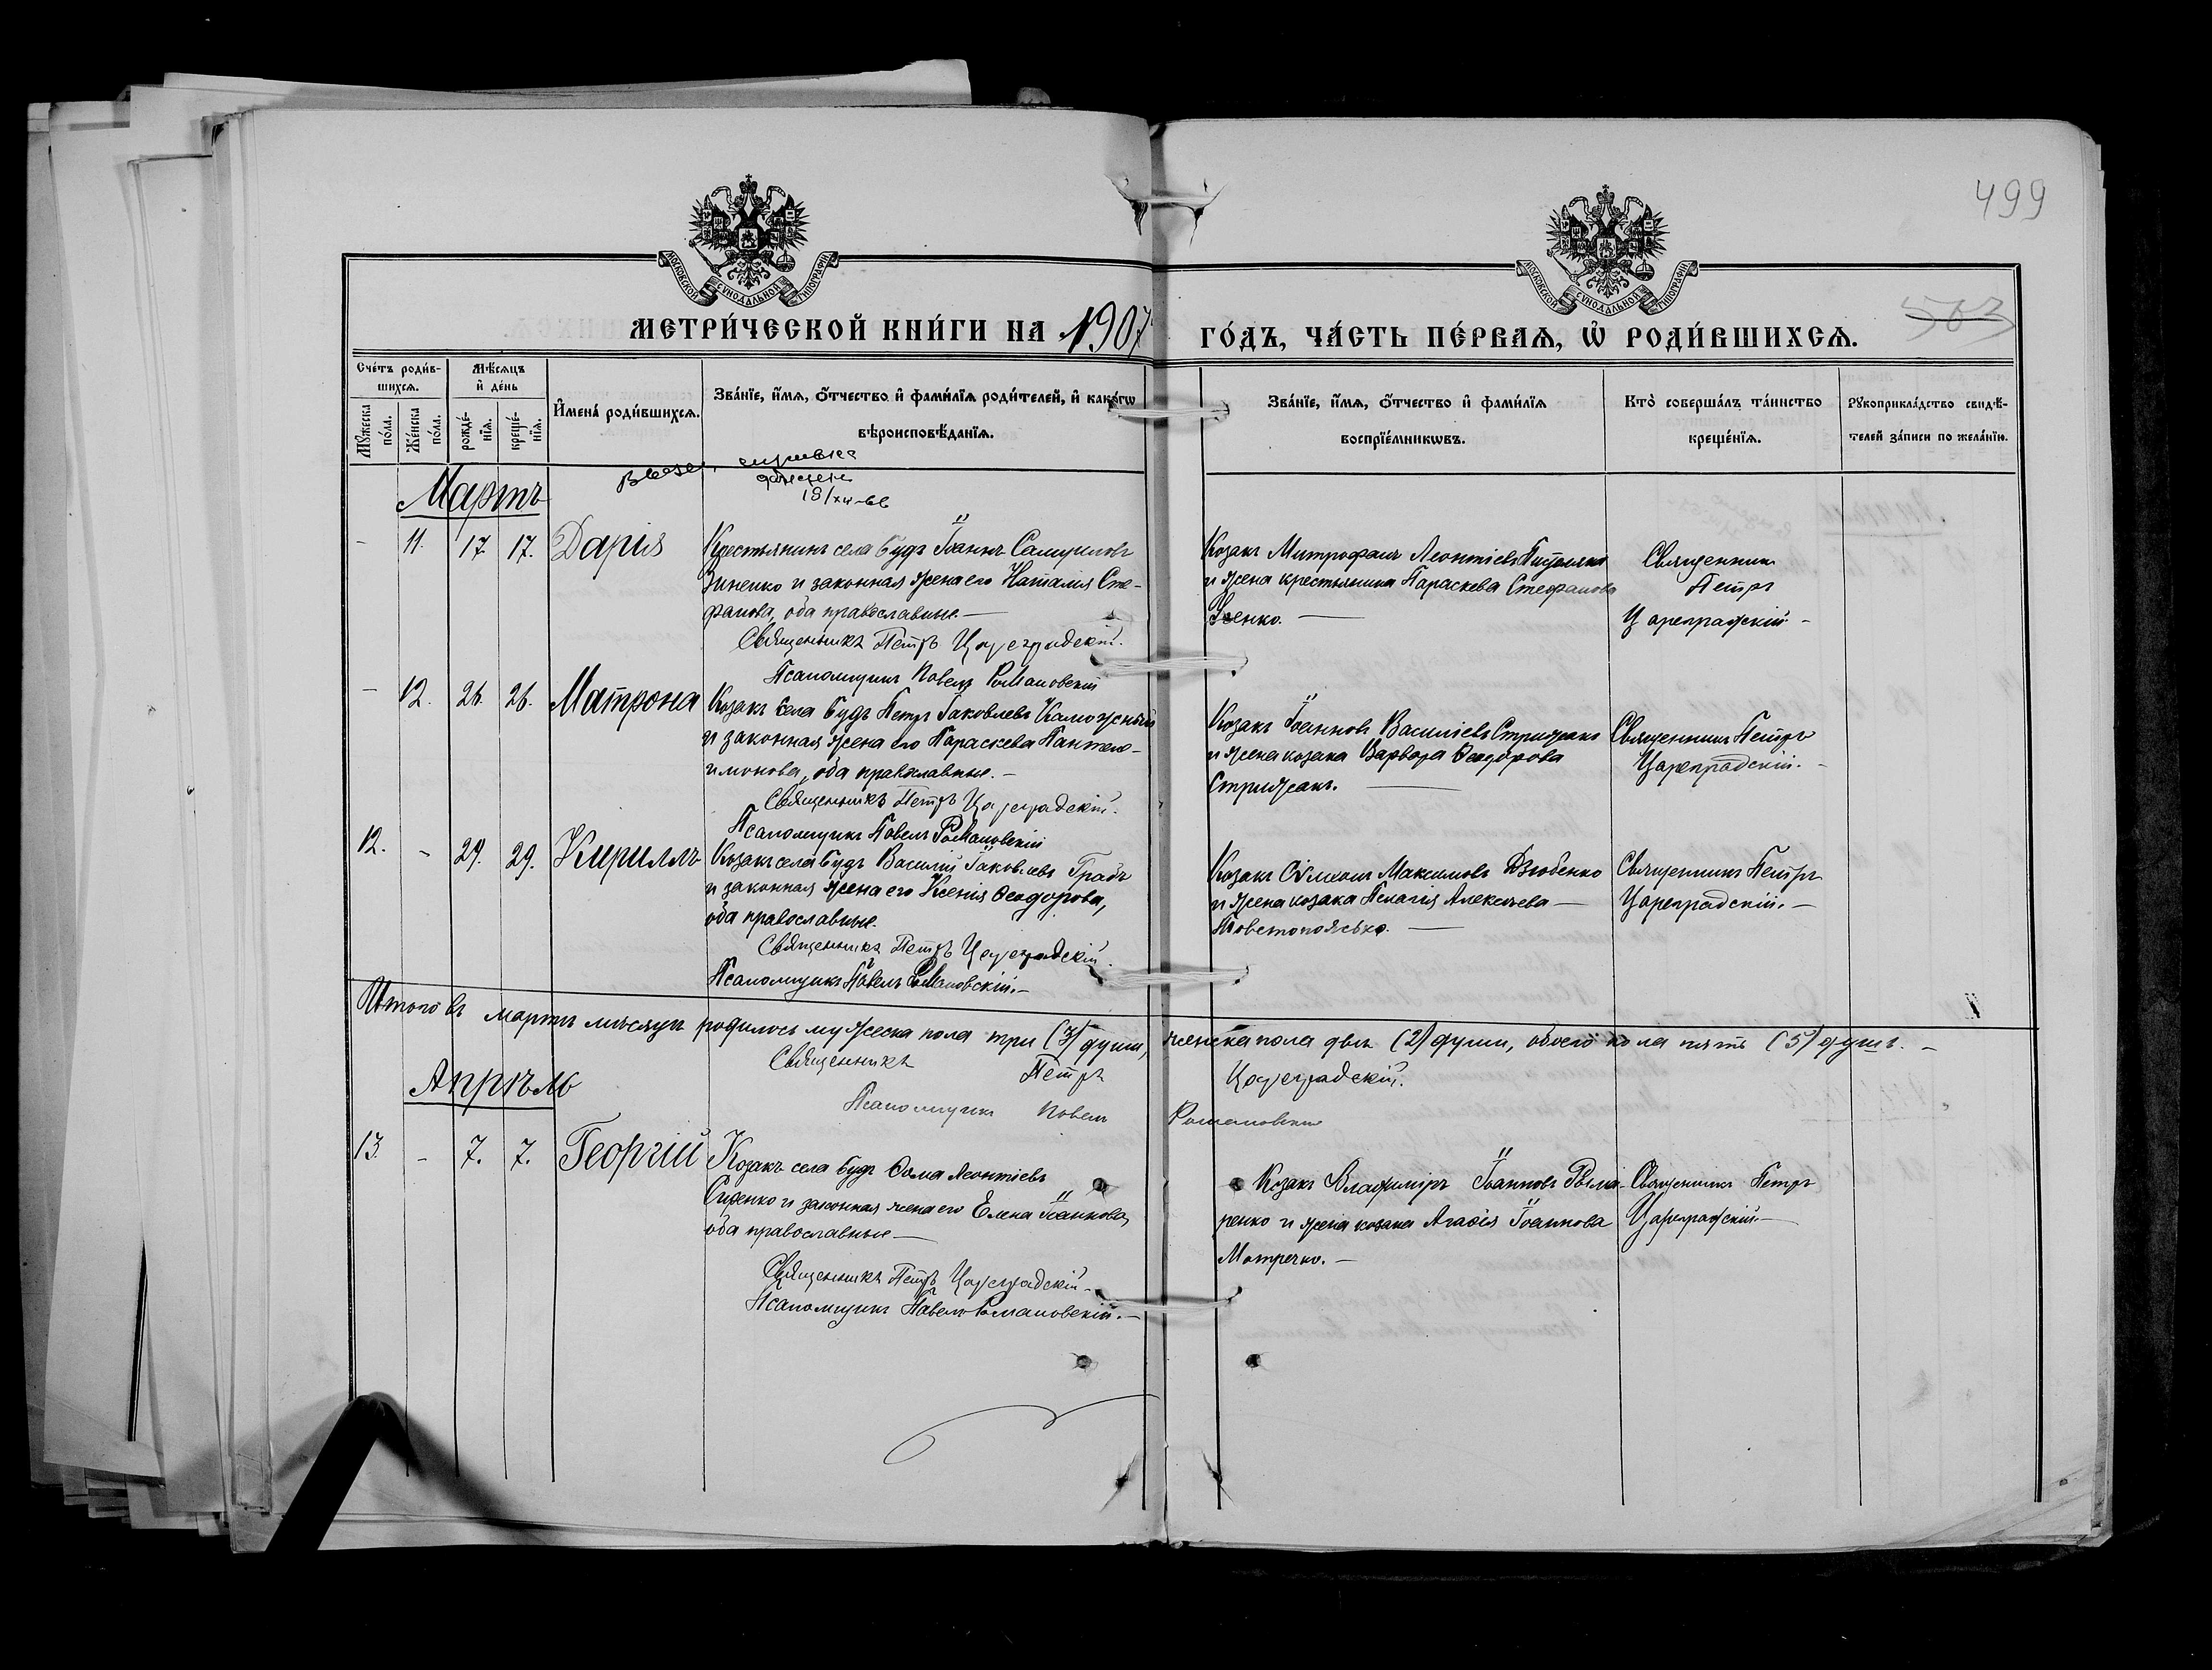 499
МОСКОВСКОЙ СѴНОДАЛЬНОЙ ТИПОГРАФІИ
МОСКОВСКОЙ СѴНОДАЛЬНОЙ ТИПОГРАФІИ
МЕТРИ́ЧЕСКОЙ КНИ́ГИ НА 1907
ГО́ДЪ, ЧА́СТЬ ПЕ́РВАѦ, Ѡ҆ РОДИ́ВШИХСѦ.
503
Сче́тъ роди́в-
шихсѧ.
Мѣ́сѧцъ
и҆ де́нь
Мꙋ́жеска по́ла.
Же́нска по́ла.
рожде́-
нїѧ.
креще́-
нїѧ.
И҆мена̀ роди́вшихсѧ.
Зва́нїе, и҆́мѧ, ѻ҆́тчество и҆ фами́лїѧ роди́телей, и҆ како́гѡ
вѣроисповѣ́данїѧ.
Зва́нїе, и҆́мѧ, ѻ҆́тчество и҆ фами́лїѧ
воспрїе́мникѡвъ.
Кто̀ соверша́лъ та́инство
креще́нїѧ.
Рꙋкоприкла́дство свидѣ́-
телей за́писи по жела́нїю.
18/XII-66
Мартъ
- 11. 17. 17. Дарія
Крестьянинъ села Будъ Іоаннъ Самуиловъ
Зиненко и законная жена его Наталія Сте-
фанова, оба православные. —
Священникъ Петръ Цареградскій.
Псаломщикъ Павелъ Романовскій
Козакъ Митрофанъ Леонтіевъ
и жена крестьянина Параскева Стефанова
Священникъ
Петръ
Цареградскій. -
- 12. 26. 26. Матрона
Козакъ села Будъ Петръ Іаковлевъ Калюжный
и законная жена его Параскева Пантеле-
имонова, оба православные. -
Священникъ Петръ Цареградскій.
Псаломщикъ Павелъ Романовскій
Козакъ Іоаннъ Василіевъ Стрижакъ
и жена козака Варвара Ѳеодорова
Стрижакъ. —
Священникъ Петръ
Цареградскій. -
12. - 29. 29. Кириллъ
Козакъ села Будъ Василій Іаковлевъ Градъ
и законная жена его Ксенія Ѳеодорова,
оба православные.
Священникъ Петръ Цареградскій.
Псаломщикъ Павелъ Романовскій. -
Козакъ Сѵмеонъ Максимовъ Дзюбенко
и жена козака Пелагія Алексіева —
Священникъ Петръ
Цареградскій. -
Итого въ мартѣ мѣсяцѣ родилось мужеска пола три (3) души, женска пола двѣ (2) души, обоего пола пять (5) душъ. -
Священникъ Петръ Цареградскій.
Псаломщикъ Павелъ Романовскій
Апрѣль
13. - 7. 7. Георгій
Козакъ села Будъ Ѳома Леонтіевъ
и законная жена его Елена Іоаннова,
оба православные —
Священникъ Петръ Цареградскій -
Псаломщикъ Павелъ Романовскій. -
Козакъ Владиміръ Іоанновъ Рыма-
ренко и жена козака Агаѳія Іоаннова
Мотречко. -
Священникъ Петръ
Цареградскій. —